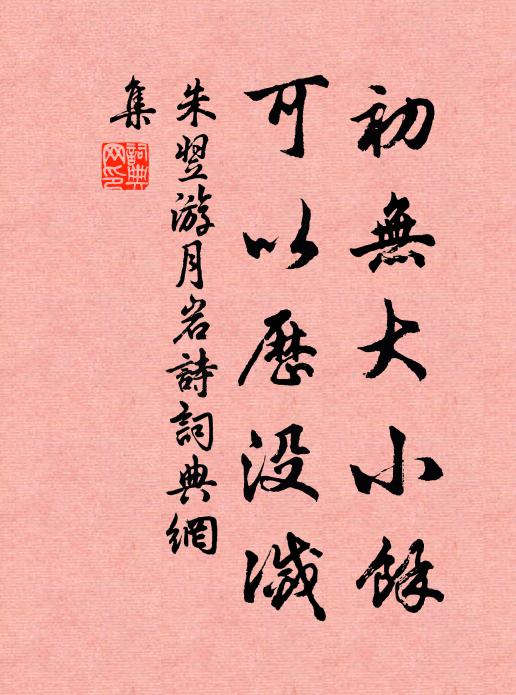 初無大小餘
可以歷没滅
朱翌游月岩詩詞典網
集
詞典
网印